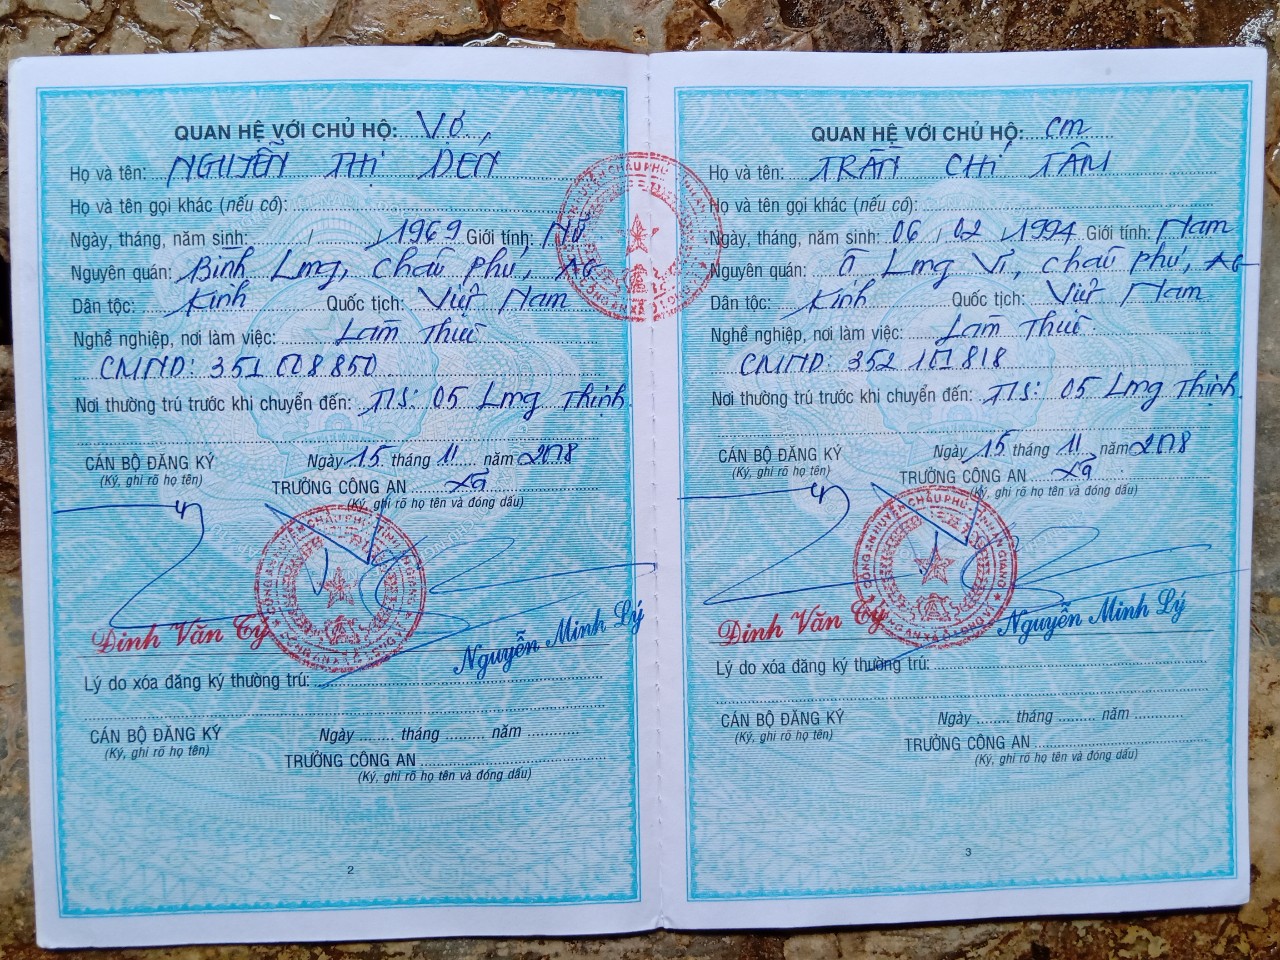 QUAN HỆ VỚI CHỦ HỘ: Vợ
Họ và tên: NGUYỄN THỊ ĐEN
Họ và tên gọi khác (nếu có):
Ngày, tháng, năm sinh: / / 1969 Giới tính: Nữ
Nguyên quán: Bình Long, Châu Phú, AG
Dân tộc: Kinh Quốc tịch: Việt Nam
Nghề nghiệp, nơi làm việc: Làm Thuê
CMND: 351 008 850
Nơi thường trú trước khi chuyển đến: 05 Long Thịnh
CÁN BỘ ĐĂNG KÝ
(Ký, ghi rõ họ tên)
Ngày 15 tháng 11 năm 2018
TRƯỞNG CÔNG AN xã
(Ký, ghi rõ họ tên và đóng dấu)
Đinh Văn Tý
Nguyễn Minh Lý
Lý do xóa đăng ký thường trú:
CÁN BỘ ĐĂNG KÝ
(Ký, ghi rõ họ tên)
Ngày ........ tháng ......... năm ............
TRƯỞNG CÔNG AN
(Ký, ghi rõ họ tên và đóng dấu)
2
QUAN HỆ VỚI CHỦ HỘ: con
Họ và tên: TRẦN CHÍ TÂM
Họ và tên gọi khác (nếu có):
Ngày, tháng, năm sinh: 06 / 02 / 1994 Giới tính: Nam
Nguyên quán: Ô Long Vĩ, Châu Phú, AG
Dân tộc: Kinh Quốc tịch: Việt Nam
Nghề nghiệp, nơi làm việc: Làm Thuê
CMND: 352 101 818
Nơi thường trú trước khi chuyển đến: 05 Long Thịnh
CÁN BỘ ĐĂNG KÝ
(Ký, ghi rõ họ tên)
Ngày 15 tháng 11 năm 2018
TRƯỞNG CÔNG AN xã
(Ký, ghi rõ họ tên và đóng dấu)
Đinh Văn Tý
Nguyễn Minh Lý
Lý do xóa đăng ký thường trú:
CÁN BỘ ĐĂNG KÝ
(Ký, ghi rõ họ tên)
Ngày ........ tháng ......... năm ............
TRƯỞNG CÔNG AN
(Ký, ghi rõ họ tên và đóng dấu)
3